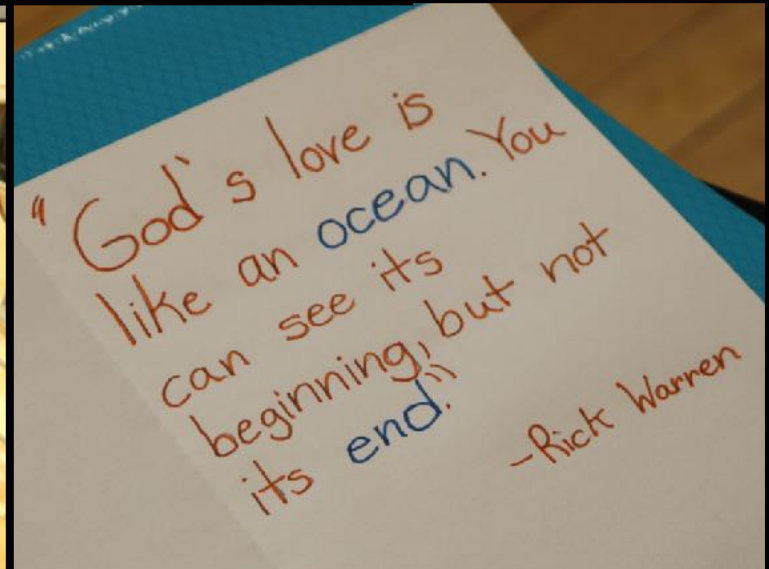 "God's love is
like an ocean. You
can see its
beginning, but not
its end."
-Rick Warren